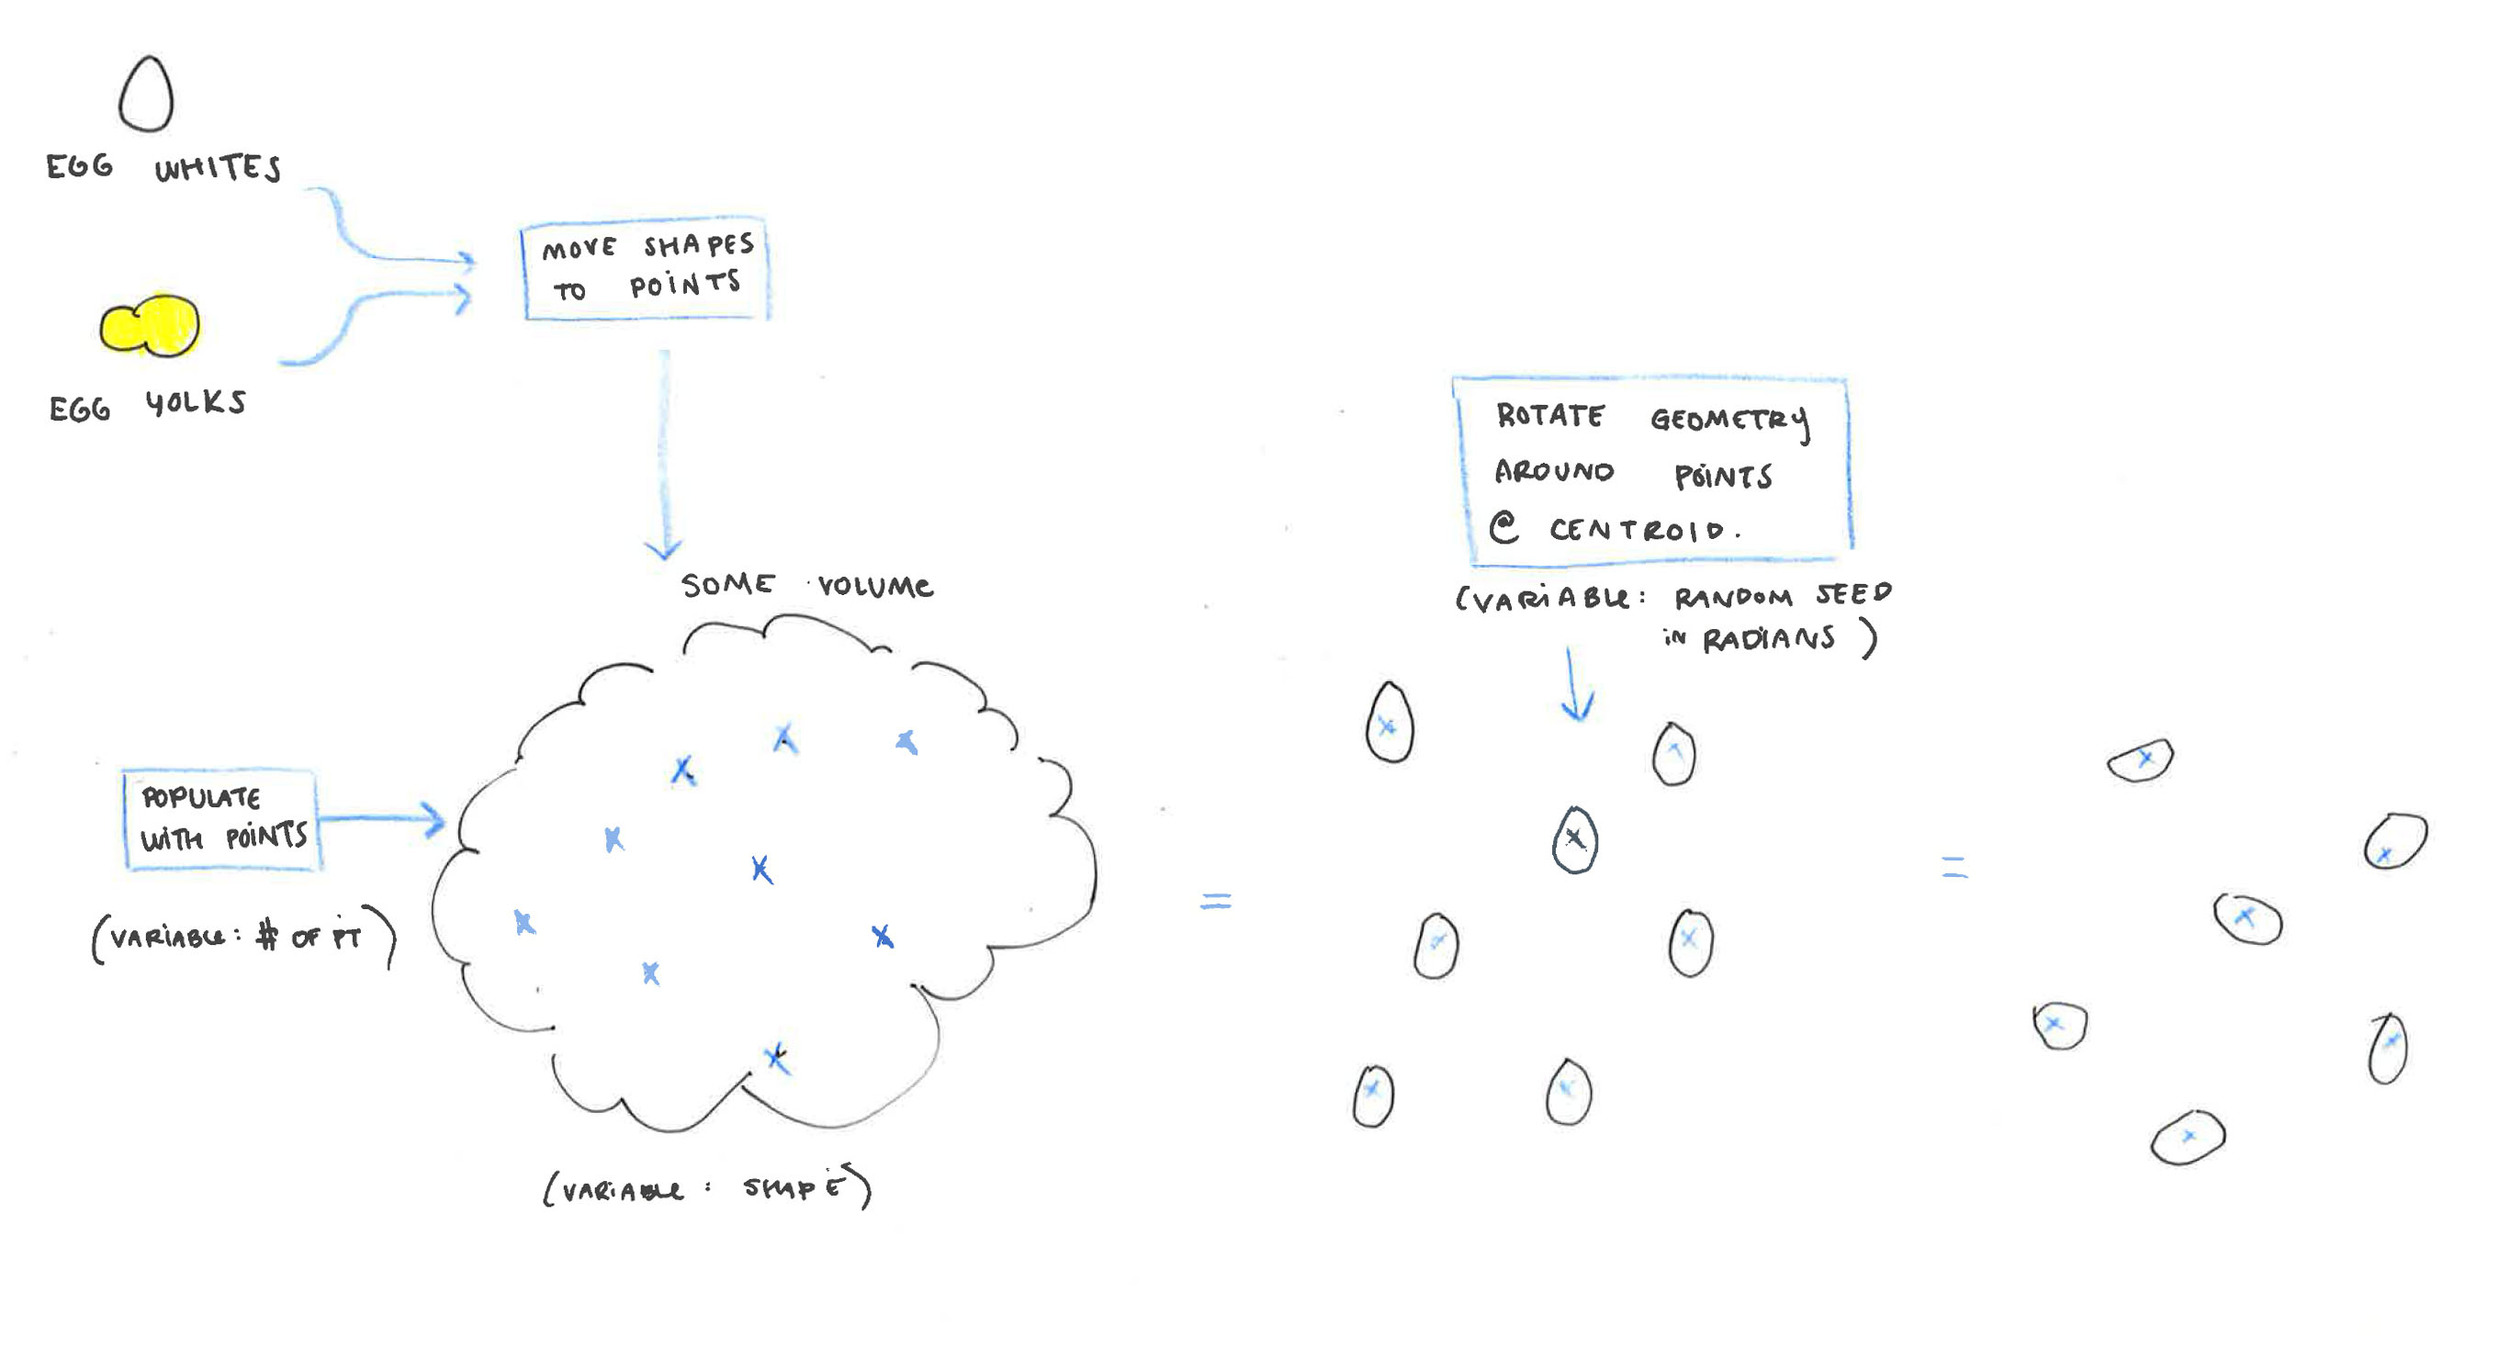 EGG WHITES
MOVE SHAPES
TO POINTS
EGG YOLKS
ROTATE GEOMETRY
AROUND POINTS
@ CENTROID.
SOME VOLUME
(VARIABLE: RANDOM SEED
IN RADIANS)
POPULATE
WITH POINTS
(VARIABLE: # OF PT)
=
=
(VARIABLE: SHAPE)